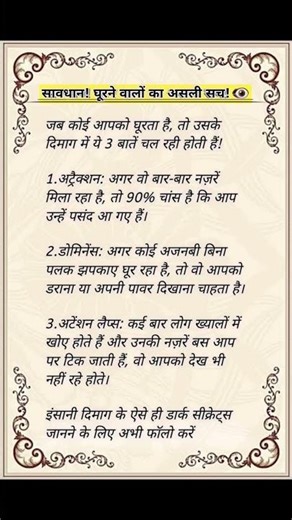 सावधान! घूरने वालों का असली सच! 👁️
जब कोई आपको घूरता है, तो उसके
दिमाग में ये 3 बातें चल रही होती हैं!
1.अट्रैक्शन: अगर वो बार-बार नज़रें
मिला रहा है, तो 90% चांस है कि आप
उन्हें पसंद आ गए हैं।
2.डोमिनेंस: अगर कोई अजनबी बिना
पलक झपकाए घूर रहा है, तो वो आपको
डराना या अपनी पावर दिखाना चाहता है।
3.अटेंशन लैप्स: कई बार लोग ख्यालों में
खोए होते हैं और उनकी नज़रें बस आप
पर टिक जाती हैं, वो आपको देख भी
नहीं रहे होते।
इंसानी दिमाग के ऐसे ही डार्क सीक्रेट्स
जानने के लिए अभी फॉलो करें